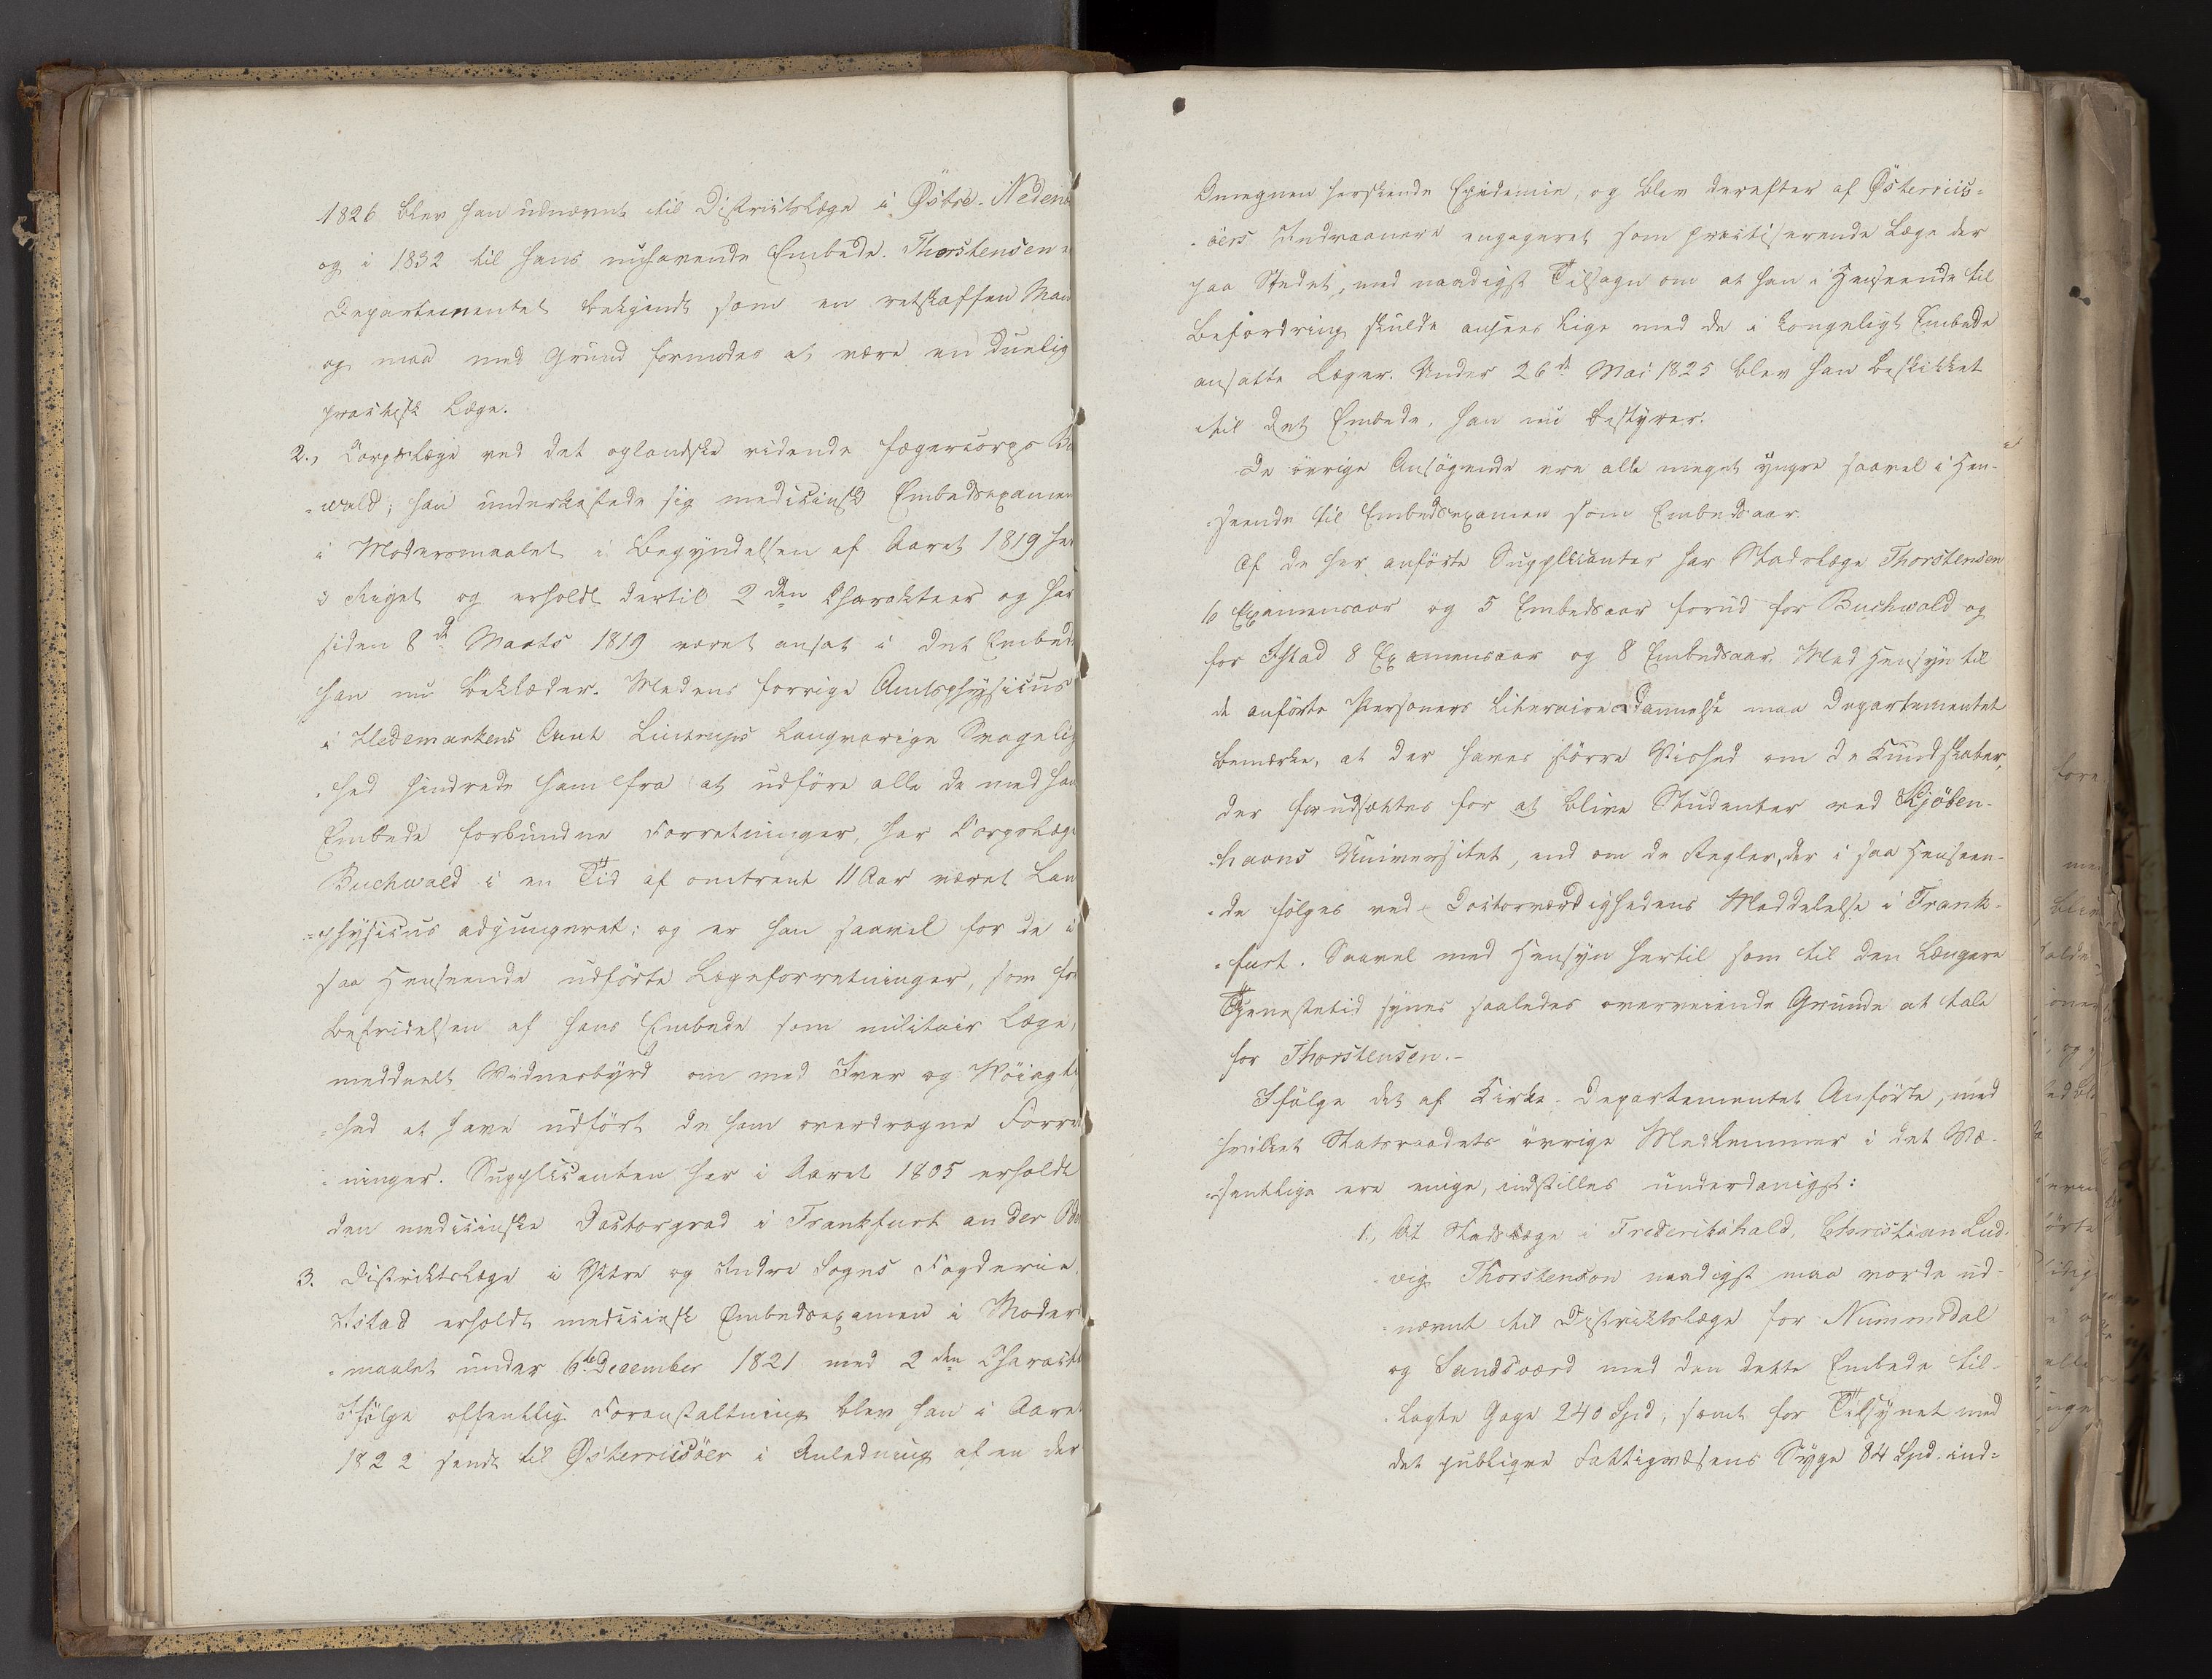 1826 blev han udnævnt til Districtslæge i Östre-Neden
og i 1832 til hans nuhavende Embede. Thorstensen e
Departementet bekjendt som en retskaffen Man
og maa med Grund formodes at være en duelig
practisk Læge.
2., Corpslæge ved det oplandske ridende Jægercorps Bu
-wald; han underkastede sig medicinsk Embedsexamen
i Modersmaalet i Begyndelsen af Aaret 1819 her
i Riget og erholdt dertil 2den Charakteer og har
siden 8de Marts 1819 været ansat i det Embed
han nu beklæder. Medens forrige Amtsphysicus
i Hedemarkens Amt Lintrups langvarige Svagelig
-hed hindrede ham fra at udföre alle de med han
Embede forbundne Forretninger, har Corpslæge
Buchwald i en Tid af omtrent 11 Aar været Lan
=physicus adjungeret; og er han saavel for de i
saa Henseende udförte Lægeforretninger, som for
Bestridelsen af hans Embede som militair Læge,
meddeelt Vidnesbyrd om med Iver og Nöiagti
=hed at have udfört de ham overdragne Forret
=ninger. Supplicanten har i Aaret 1805 erholdt
den medicinske Doctorgrad i Frankfurt an der Ode
3. Districtslæge i Yttre og Indre Sogns Fogderie
Istad erholdt medicinsk Embedsexamen i Moders
=maalet under 6te December 1821 med 2den Charact
Ifölge offentlig Foranstaltning blev han i Aaret
1822 sendt til Østerriisöer i Anledning af en der
Omegnen herskende Epidemie, og blev derefter af Østerriis=
=öers Indvaanere engageret som practiserende Læge der
paa Stedet, med naadigst Tilsagn om at han i Henseende til
Befordring skulde ansees lige med de i kongeligt Embede
ansatte Læger. Under 26de Mai 1825 blev han beskikket
til det Embede, han nu bestyrer.
De övrige Ansögende ere alle meget yngre saavel i Hen-
=seende til Embedsexamen som Embedsaar.
Af de her anförte Supplicanter har Stadslæge Thorstensen
6 Examensaar og 5 Embedsaar forud for Buchwald og
for Istad 8 Examensaar og 8 Embedsaar. Med Hensyn til
de anförte Personers literaire Dannelse maa Departementet
bemærke, at der haves större Vished om de Kundskaber,
der forudsættes for at blive Studenter ved Kjöben-
-havns Universitet, end om de Regler, der i saa Henseen-
-de fölges ved Doctorværdighedens Meddelelse i Frank-
=furt. Saavel med Hensyn hertil som til den længere
Tjenestetid synes saaledes overveiende Grunde at tale
for Thorstensen.-
Ifölge det af Kirke-Departementet Anförte, med
hvilket Statsraadets övrige Medlemmer i det Væ-
=sentlige ere enige, indstilles underdanigst:
1., At Stadslæge i Frederikshald, Christian Lud-
-vig Thorstenson naadigst maa vorde ud-
=nævnt til Districtslæge for Nummedal
og Sandsværd med den dette Embede til-
-lagte Gage 240 Spd, samt for Tilsynet med
det publiqve Fattigvæsens Syge 84 Spd. ind=